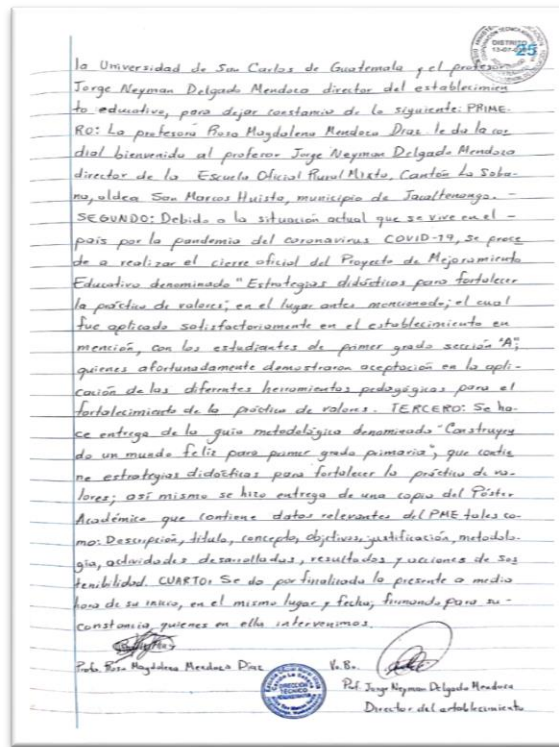 DISTRITO
25
la Universidad de San Carlos de Guatemala y el profesor
Jorge Neyman Delgado Mendoza director del establecimien
to educativo, para dejar constancia de lo siguiente: PRIME-
RO: La profesora Rosa Magdalena Mendoza Díaz le da la cor
dial bienvenida al profesor Jorge Neyman Delgado Mendoza
director de la Escuela Oficial Rural Mixta, Cantón La Saba-
na, aldea San Marcos Huista, municipio de Jacaltenango. -
SEGUNDO: Debido a la situación actual que se vive en el -
país por la pandemia del coronavirus COVID-19, se proce
de a realizar el cierre oficial del Proyecto de Mejoramiento
Educativo denominado "Estrategias didácticas para fortalecer
la práctica de valores; en el lugar antes mencionado; el cual
fue aplicado satisfactoriamente en el establecimiento en
mención, con los estudiantes de primer grado sección "A";
quienes afortunadamente demostraron aceptación en la apli-
cación de las diferentes herramientas pedagógicas para el
fortalecimiento de la práctica de valores. TERCERO: Se ha-
ce entrega de la guía metodológica denominada "Construyen
do un mundo feliz para primer grado primaria", que contie
ne estrategias didácticas para fortalecer la práctica de va-
lores; así mismo se hizo entrega de una copia del Póster
Académico que contiene datos relevantes del PME tales co-
mo: Descripción, título, concepto, objetivos, justificación, metodolo-
gía, actividades desarrolladas, resultados y acciones de sos
tenibilidad. CUARTO: Se da por finalizada la presente a media
hora de su inicio, en el mismo lugar y fecha; firmando para su -
constancia quienes en ella intervenimos.
Profa. Rosa Magdalena Mendoza Díaz
Vo. Bo.
DIRECCIÓN
TÉCNICO
Prof. Jorge Neyman Delgado Mendoza
Director del establecimiento